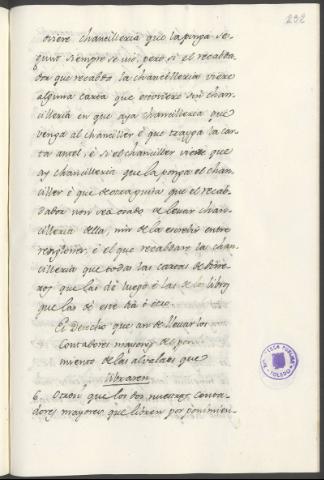 232
oviere chancilleria que la ponga se-
gunt siempre se usó, pero si el recabda-
dor que recabda la chancilleria viere
alguna carta que estoviere sin chan-
cilleria en que aya chancilleria que
venga al chanciller é que trayga la car-
ta antel, é si el chanciller viere que
ay chancilleria que la ponga el chan-
ciller é que de otra guisa que el recab-
dador non sea osado de levar chan-
cilleria della, nin de la escrebir entre
renglones, é el que recabdare la chan-
cilleria que todas las cartas de
que las dé luego é las de los libros
que las dé este dia é
El Derecho que an de llevar los
Contadores mayores de poni-
miento de las alvalaes que
libraren
6. Otrosi que los dos nuestros conta-
dores mayores que libren por ponimien-
BIBLIOTECA PUBLICA
TOLEDO